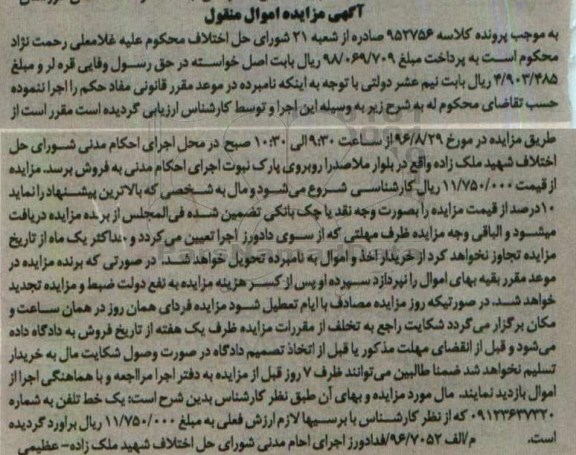 آگهی مزایده اموال منقول
به موجب پرونده کلاسه ۹۵۲۷۵۶ صادره از شعبه ۲۱ شورای حل اختلاف محکوم علیه غلامعلی رحمت نژاد
محکوم است به پرداخت مبلغ ۹۸/۰۶۹/۷۰۹ ریال بابت اصل خواسته در حق رسول وفایی قره لر و مبلغ
۴/۹۰۳/۴۸۵ ریال بابت نیم عشر دولتی با توجه به اینکه نامبرده در موعد مقرر قانونی مفاد حکم را اجرا ننموده
حسب تقاضای محکوم له به شرح زیر به وسیله این اجرا و توسط کارشناس ارزیابی گردیده است مقرر است از
طریق مزایده در مورخ ۹۶/۸/۲۹ از ساعت ۹:۳۰ الی ۱۰:۳۰ صبح در محل اجرای احکام مدنی شورای حل
اختلاف شهید ملک زاده واقع در بلوار ملاصدرا روبروی پارک نبوت اجرای احکام مدنی به فروش برسد. مزایده
از قیمت ۱۱/۷۵۰/۰۰۰ ریال کارشناسی شروع می‌شود و مال به شخصی که بالاترین پیشنهاد را نماید
۱۰درصد از قیمت مزایده را بصورت وجه نقد یا چک بانکی تضمین شده فی‌المجلس از برنده مزایده دریافت
میشود و الباقی وجه مزایده ظرف مهلتی که از سوی دادورز اجرا تعیین می‌گردد و حداکثر یک ماه از تاریخ
مزایده تجاوز نخواهد کرد از خریدار اخذ و اموال به نامبرده تحویل خواهد شد. در صورتی که برنده مزایده در
موعد مقرر بقیه بهای اموال را نپردازد سپرده او پس از کسر هزینه مزایده به نفع دولت ضبط و مزایده تجدید
خواهد شد. در صورتیکه روز مزایده مصادف با ایام تعطیل شود مزایده فردای همان روز در همان ساعت و
مکان برگزار می‌گردد شکایت راجع به تخلف از مقررات مزایده ظرف یک هفته از تاریخ فروش به دادگاه داده
می‌شود و قبل از انقضای مهلت مذکور یا قبل از اتخاذ تصمیم دادگاه در صورت وصول شکایت مال به خریدار
تسلیم نخواهد شد ضمنا طالبین می‌توانند ظرف ۷ روز قبل از مزایده به دفتر اجرا مراجعه و با هماهنگی اجرا از
اموال بازدید نمایند. مال مورد مزایده و بهای آن طبق نظر کارشناس بدین شرح است: یک خط تلفن به شماره
۰۹۱۲۳۶۳۷۳۲۰ که از نظر کارشناس با بررسیها لازم ارزش فعلی به مبلغ ۱۱/۷۵۰/۰۰۰ ریال براورد گردیده
است. م/الف ۹۶/۷۰۵۲/ف دادورز اجرای احام مدنی شورای حل اختلاف شهید ملک زاده- عظیمی